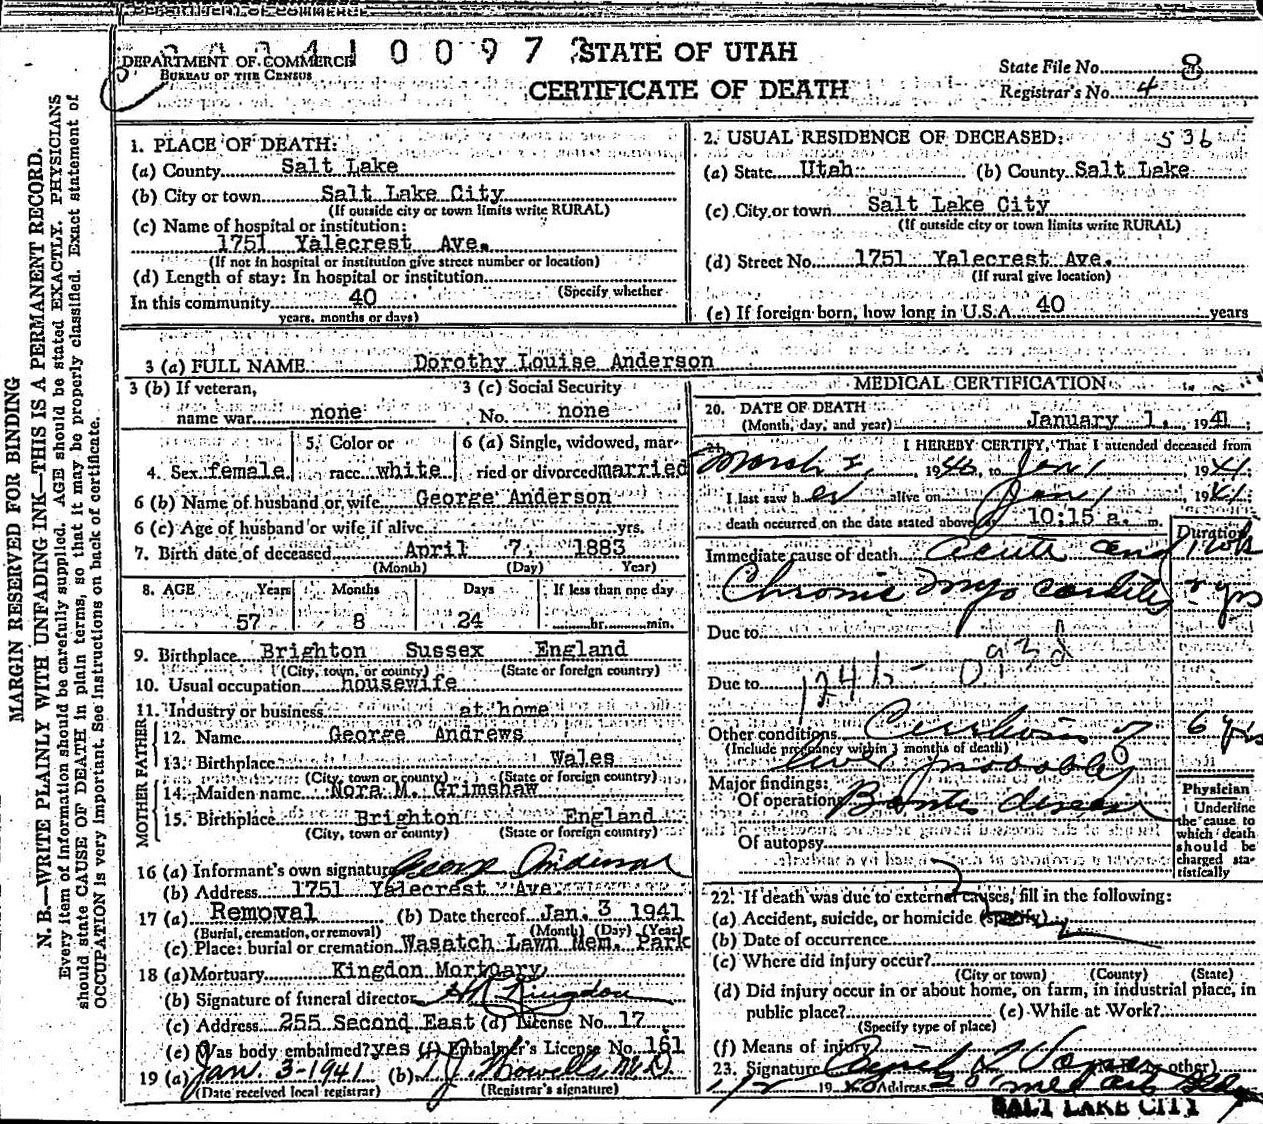 DEPARTMENT OF COMMERCE
BUREAU OF THE CENSUS
0 0 9 7
STATE OF UTAH
CERTIFICATE OF DEATH
State File No. 8
Registrar's No. 4
MARGIN RESERVED FOR BINDING
N. B.—WRITE PLAINLY WITH UNFADING INK—THIS IS A PERMANENT RECORD.
Every item of information should be carefully supplied. AGE should be stated EXACTLY. PHYSICIANS
should state CAUSE OF DEATH in plain terms, so that it may be properly classified. Exact statement of
OCCUPATION is very important. See Instructions on back of certificate.
1. PLACE OF DEATH:
(a) County Salt Lake
(b) City or town Salt Lake City
(If outside city or town limits write RURAL)
(c) Name of hospital or institution:
1751 Yalecrest Ave.
(If not in hospital or institution give street number or location)
(d) Length of stay: In hospital or institution
(Specify whether
In this community 40
years, months or days)
2. USUAL RESIDENCE OF DECEASED: 536
(a) State Utah (b) County Salt Lake
(c) City or town Salt Lake City
(If outside city or town limits write RURAL)
(d) Street No. 1751 Yalecrest Ave.
(If rural give location)
(e) If foreign born, how long in U.S.A. 40 years
3 (a) FULL NAME Dorothy Louise Anderson
3 (b) If veteran, name war none
3 (c) Social Security No. none
4. Sex female
5. Color or race white
6 (a) Single, widowed, married or divorced married
6 (b) Name of husband or wife George Anderson
6 (c) Age of husband or wife if alive yrs.
7. Birth date of deceased April 7, 1883
(Month) (Day) Year)
8. AGE Years Months Days If less than one day
57 8 24 hr. min.
9. Birthplace Brighton Sussex England
(City, town, or county) (State or foreign country)
10. Usual occupation housewife
11. Industry or business at home
FATHER
12. Name George Andrews
13. Birthplace Wales
(City, town or county) (State or foreign country)
MOTHER
14. Maiden name Nora M. Grimshaw
15. Birthplace Brighton England
(City, town or county) (State or foreign country)
16 (a) Informant's own signature George Anderson
(b) Address 1751 Yalecrest Ave
17 (a) Removal (b) Date thereof Jan. 3 1941
(Burial, cremation, or removal) (Month) (Day) (Year)
(c) Place: burial or cremation Wasatch Lawn Mem. Park
18 (a) Mortuary Kingdon Mortuary
(b) Signature of funeral director Kingdon
(c) Address 255 Second East (d) License No. 17
(e) Was body embalmed? yes (f) Embalmer's License No. 161
19 (a) Jan. 3-1941 (b) Howells M.D.
(Date received local registrar) (Registrar's signature)
MEDICAL CERTIFICATION
20. DATE OF DEATH
(Month, day, and year) January 1, 1941
21. I HEREBY CERTIFY, That I attended deceased from
March 2, 1940 to Jan 1 1941
I last saw her alive on Jan 1 1941
death occurred on the date stated above at 10:15 a. m.
Duration
Immediate cause of death Acute and
Chronic Myocarditis yrs
Due to
Due to 124b - 093d
Other conditions Cirrhosis of 6 yrs
(Include pregnancy within 3 months of death)
liver probably
Major findings:
Of operations Bantis disease
Of autopsy
Physician
Underline
the cause to
which death
should be
charged sta-
tistically
22. If death was due to external causes, fill in the following:
(a) Accident, suicide, or homicide (specify)
(b) Date of occurrence
(c) Where did injury occur?
(City or town) (County) (State)
(d) Did injury occur in or about home, on farm, in industrial place, in
public place? (e) While at Work?
(Specify type of place)
(f) Means of injury
23. Signature other)
Address Med Arts Bldg
SALT LAKE CITY